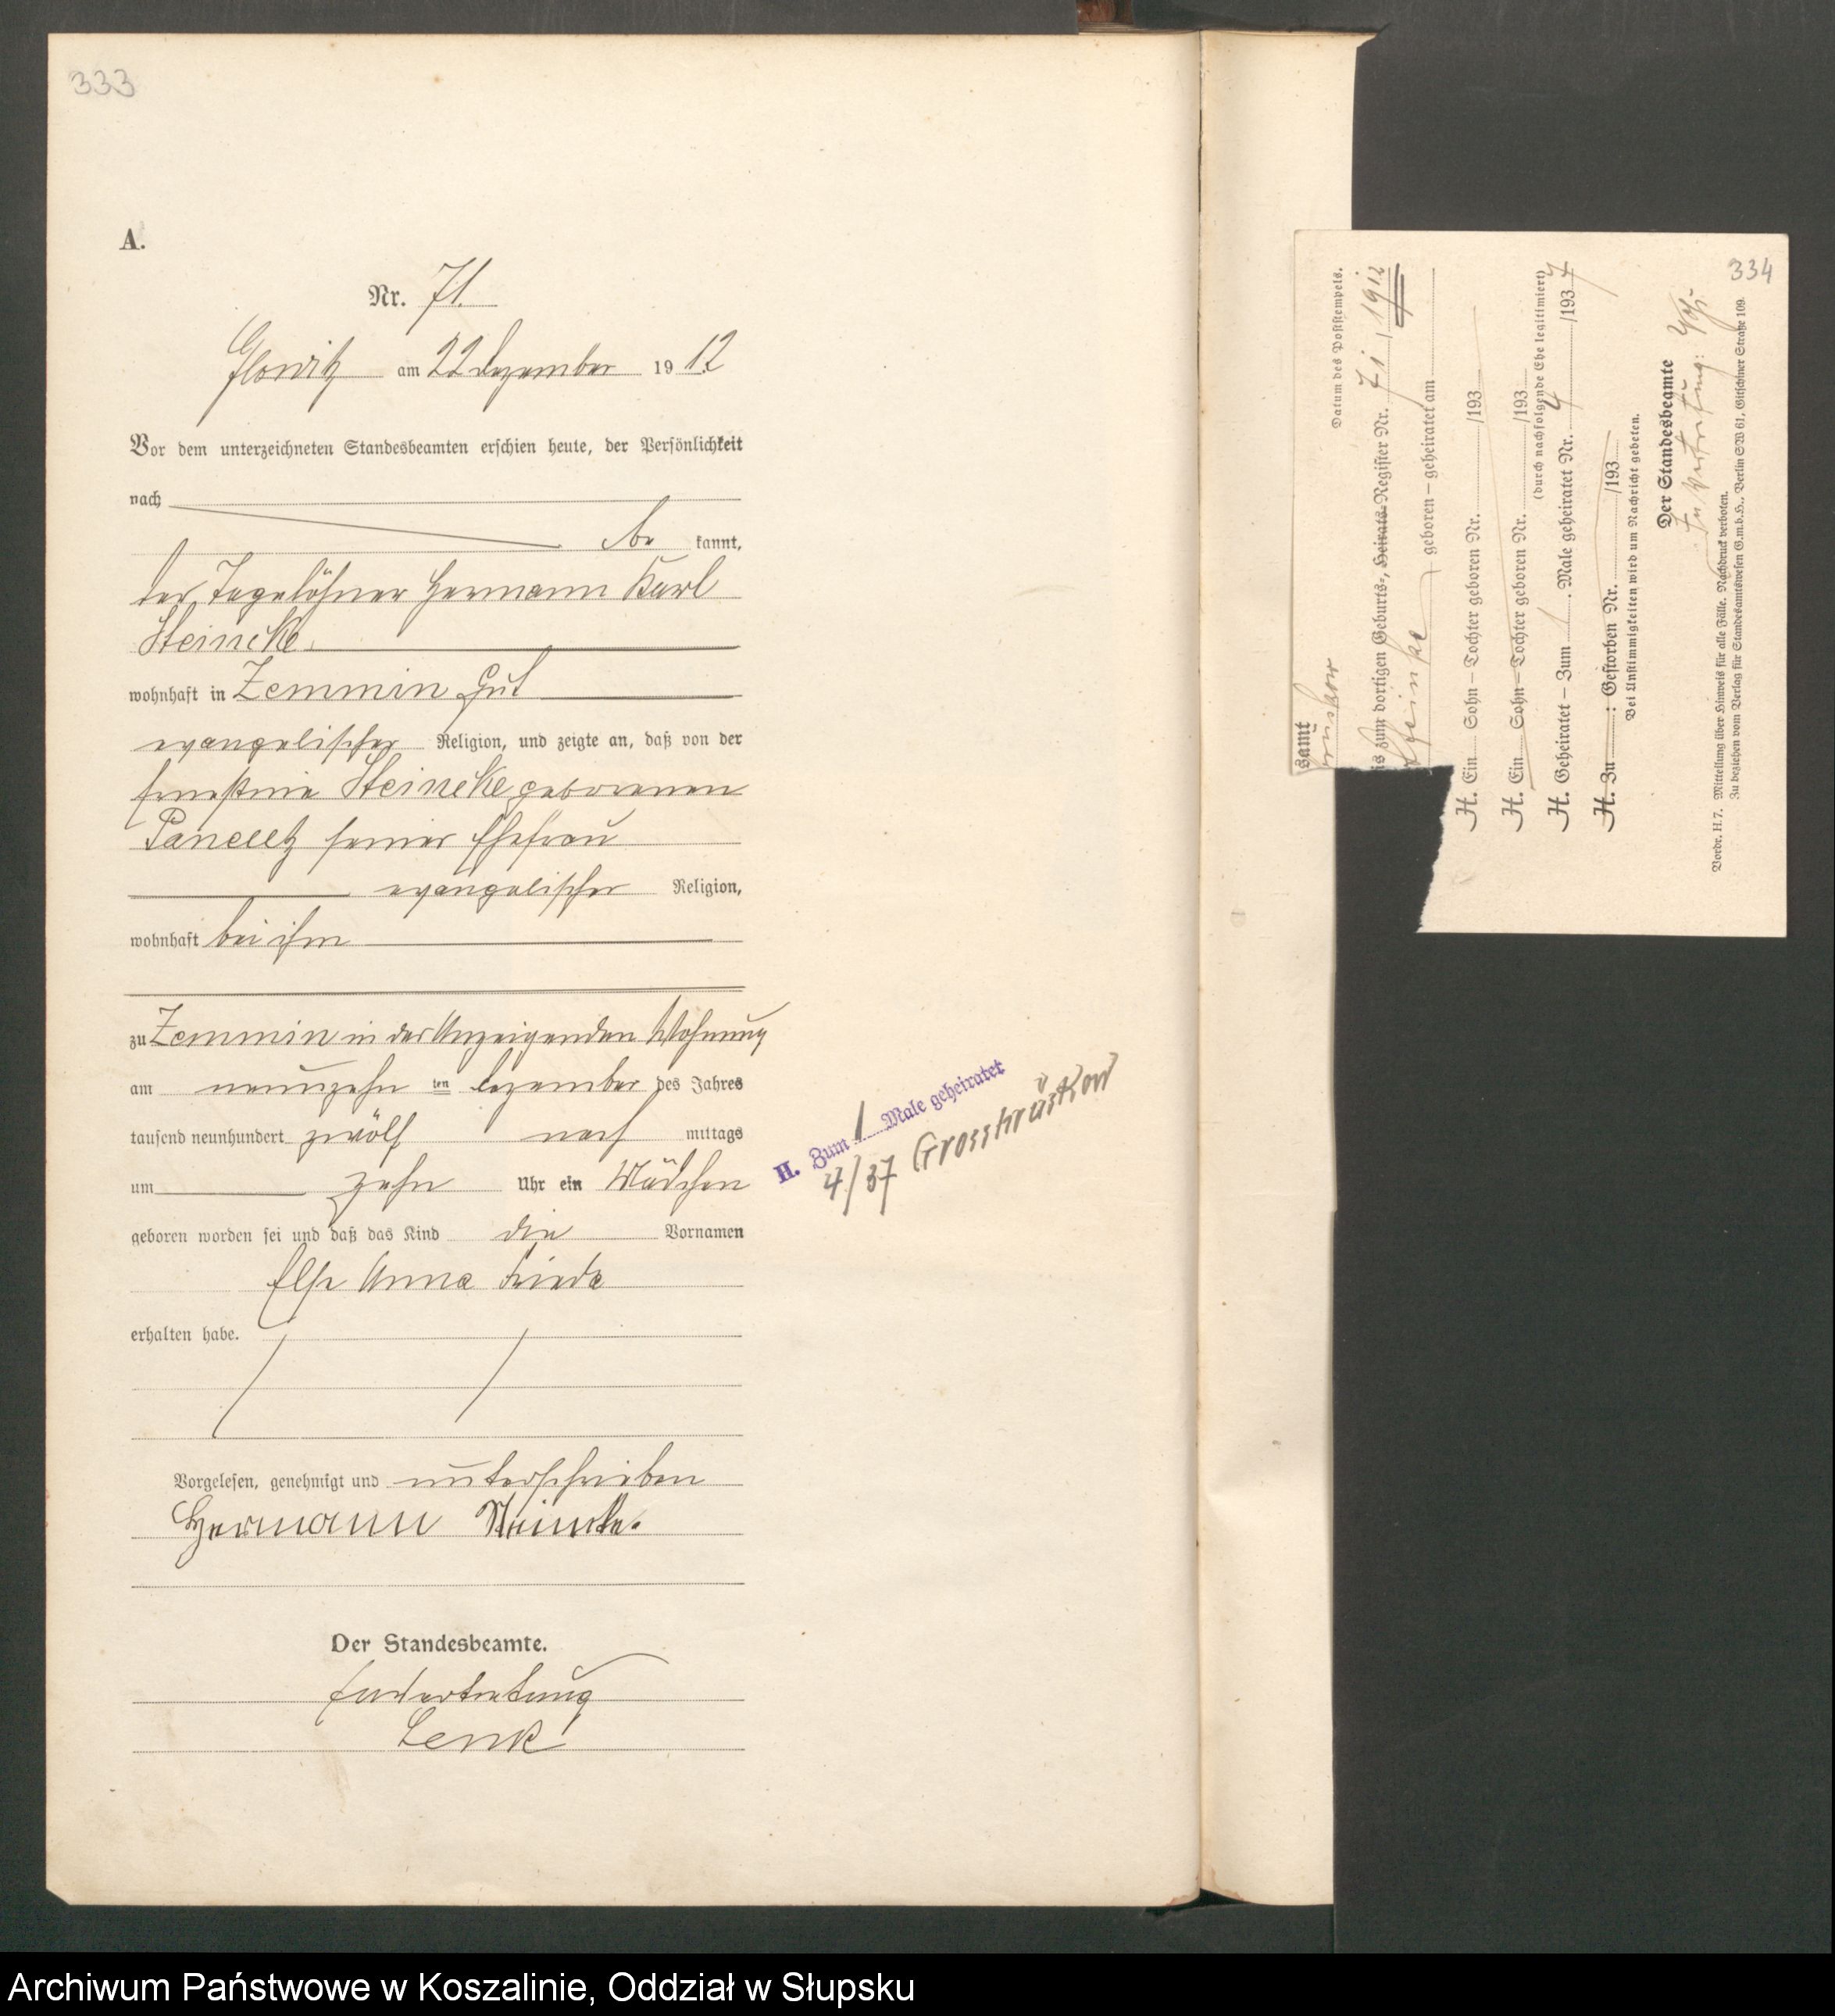 333
A.
Nr. 71.
Glowitz am 22 Dezember 1912
Vor dem unterzeichneten Standesbeamten erschien heute, der Persönlichkeit
nach
be kannt,
der Tagelöhner Hermann Karl
Steincke
wohnhaft in Zemmin Gut
evangelischer Religion, und zeigte an, daß von der
Ernestine Steincke geborenen
seiner Ehefrau
evangelischer Religion,
wohnhaft bei ihm
zu Zemmin in des Anzeigenden Wohnung
am neunzehn ten Dezember des Jahres
tausend neunhundert zwölf nach mittags
um zehn Uhr ein Mädchen
geboren worden sei und daß das Kind die Vornamen
Else Anna Frieda
erhalten habe.
Vorgelesen, genehmigt und unterschrieben
Hermann Steincke.
Der Standesbeamte.
In Vertretung
Lenk
H. Zum 1 Male geheiratet
4/37 Grossbrüskow
334
samt
Datum des Poststempels.
is zum dortigen Geburts-, Heirats-Register Nr. 71 / 1912
Steinke geboren – geheiratet am
H. Ein Sohn – Tochter geboren Nr. /193
H. Ein Sohn – Tochter geboren Nr. /193
(durch nachfolgende Ehe legitimiert)
H. Geheiratet – Zum 1. Male geheiratet Nr. 4 /1937
H. Zu : Gestorben Nr. /193
Bei Unstimmigkeiten wird um Nachricht gebeten.
Der Standesbeamte
In Vertretung:
Vordr. H.7. Mitteilung über Hinweis für alle Fälle. Nachdruck verboten.
Zu beziehen vom Verlag für Standesamtswesen G.m.b.H., Berlin SW 61, Gitschiner Straße 109.
Archiwum Państwowe w Koszalinie, Oddział w Słupsku